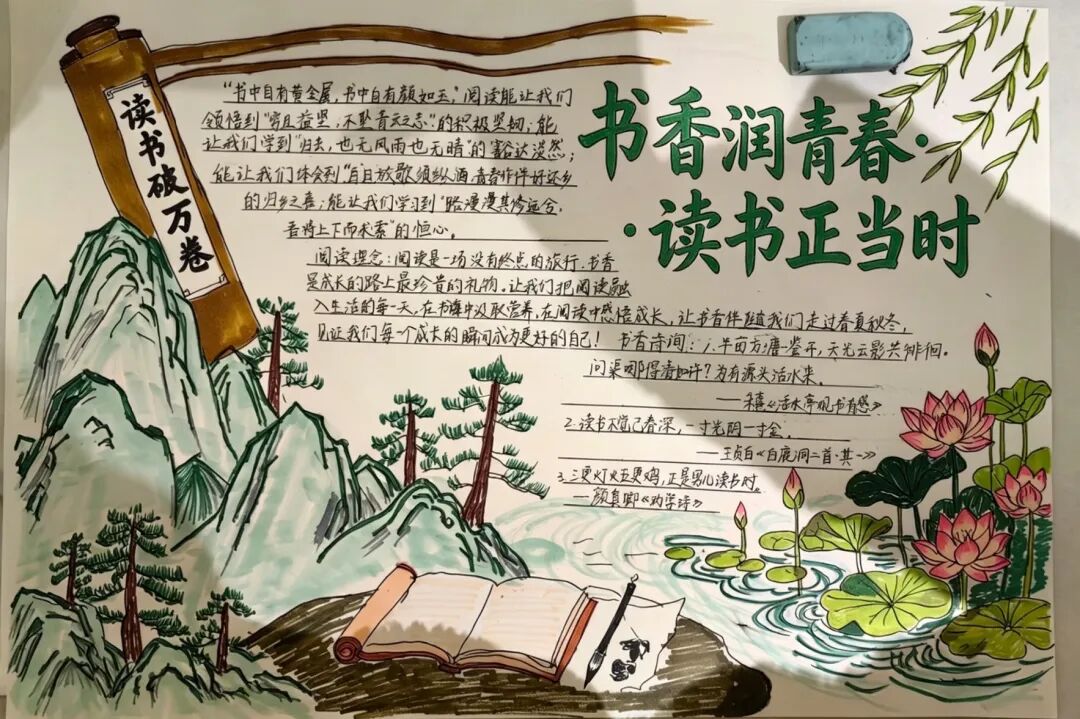 读书破万卷
书香润青春·
·读书正当时
“书中自有黄金屋,书中自有颜如玉,”阅读能让我们
领悟到“穷且益坚,不坠青云志.”的积极坚韧;能
让我们学到“归去,也无风雨也无晴”的豁达淡然;
能让我们体会到“白日放歌须纵酒,青春作伴好还乡
的归乡之喜;能让我们学习到“路漫漫其修远兮,
吾将上下而求索”的恒心。
阅读理念:阅读是一场没有终点的旅行.书香
是成长的路上最珍贵的礼物。让我们把阅读融
入生活的每一天,在书海中汲取营养,在阅读中感悟成长,让书香伴随我们走过春夏秋冬,
见证我们每一个成长的瞬间成为更好的自己! 书香诗间:1.半亩方塘一鉴开,天光云影共徘徊。
问渠哪得清如许?为有源头活水来。
——朱熹《活水亭观书有感》
2.读书不觉已春深,一寸光阴一寸金.
——王贞白《白鹿洞二首·其一》
3.三更灯火五更鸡,正是男儿读书时。
—颜真卿《劝学诗》